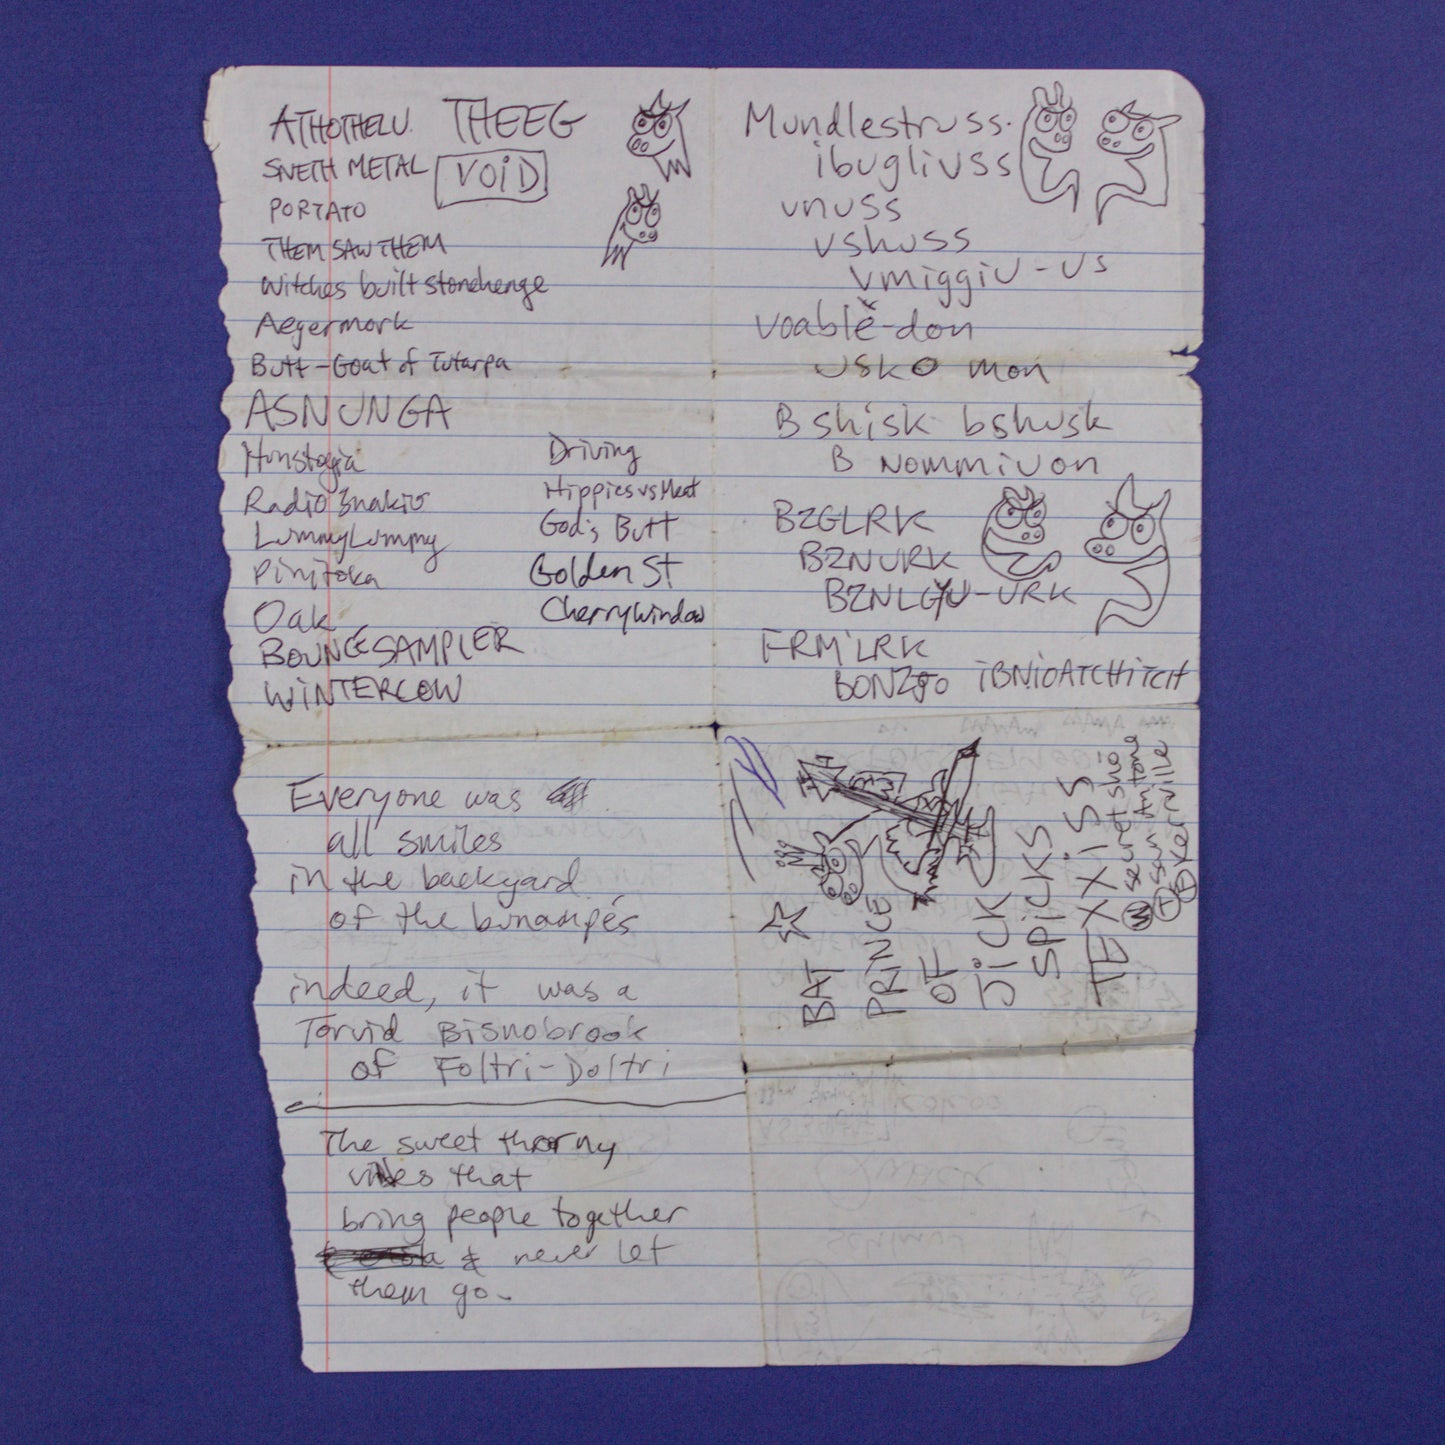 ATHOTHELU. THEEG
SNETH METAL VOID
PORTATO
THEM SAW THEM
Witches built stonehenge
Aegermork
Butt-Goat of Tutarpa
ASNUNGA
Hunstogia
Radio Bnakiu
LummyLumpy
Pinitoka
Oak
BOUNCESAMPLER
WINTERCOW
Driving
Hippies vs Meat
God's Butt
Golden St
CherryWindow
Mundlestruss.
ibugliuss
unuss
Ushuss
Umiggiu-us
Voablĕ-don
usko mon
B shisk bshusk
B Nommiuon
BZGLRK
BZNURK
BZNLGYU-URK
FRM'LRK
BONZGO iBNiOATCHiTCH
Everyone was
all smiles
in the backyard
of the binampés
indeed, it was a
Torvid Bisnobrook
of Foltri-Doltri
The sweet thorny
vibes that
bring people together
& never let
them go.
BAT
PRINCE
OF
JiCK
SPiCKS
TEXXiSS
W secret sho
T San Antone
F Kerrville